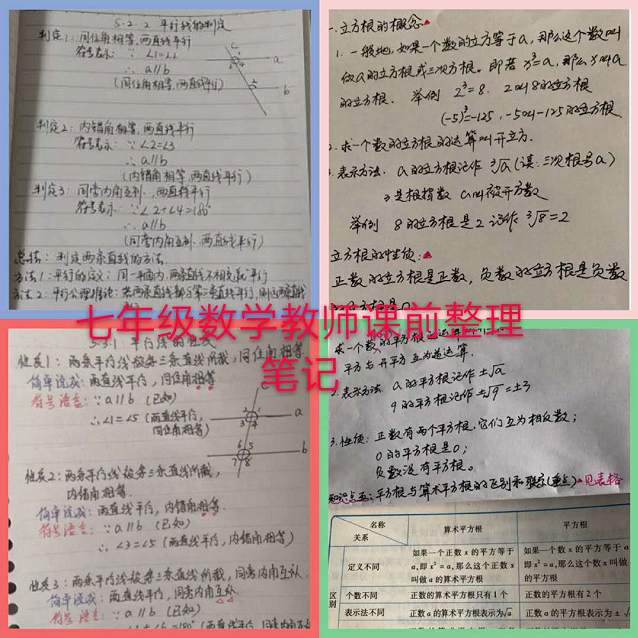 5.2.2 平行线的判定
判定1:同位角相等,两直线平行
符号表示: ∵ ∠1=∠2
∴ a∥b
(同位角相等,两直线平行)
判定2:内错角相等,两直线平行
符号表示: ∵ ∠2=∠3
∴ a∥b
(内错角相等,两直线平行)
判定3:同旁内角互补,两直线平行
符号表示: ∵∠2+∠4=180°
∴ a∥b
(同旁内角互补,两直线平行)
总结:判定两条直线的方法
方法1:平行的定义:同一平面内,两条直线不相交就平行
方法2:平行公理推论:
c
a
b
一.立方根的概念
1.一般地,如果一个数的立方等于a,那么这个数叫
做a的立方根或三次方根。即若x³=a,那么x叫a
的立方根. 举例 2³=8, 2叫8的立方根
(-5)³=-125,-5叫-125的立方根
2.求一个数的立方根的运算叫开立方.
3.表示方法. a的立方根记作 ³√a(读:三次根号a)
3是根指数 a叫被开方数
举例 8的立方根是2 记作 ³√8=2
立方根的性质:
正数的立方根是正数,负数的立方根是负数
七年级数学教师课前整理
笔记
5.3.1 平行线的性质
性质1:两条平行线被第三条直线所截,同位角相等
简单说成:两直线平行,同位角相等
符号语言:∵a∥b (已知)
∴∠1=∠5 (两直线平行,
同位角相等)
性质2:两条平行线被第三条直线所截,
内错角相等.
简单说成:两直线平行,内错角相等.
符号语言:∵a∥b (已知)
∴∠3=∠5 (两直线平行,内错角相等)
性质3:两条平行线被第三条直线所截,同旁内角互补.
简单说成:两直线平行,同旁内角互补
符号语言:∵a∥b (已知)
a
b
求一个数的平方根
平方与开平方互为逆运算.
2.表示方法 a的平方根记作±√a
9的平方根记作±√9=±3
3.性质:正数有两个平方根,它们互为相反数;
0的平方根是0;
负数没有平方根。
知识点五:平方根与算术平方根的区别和联系(重点)见表格
名称
关系
算术平方根
平方根
区别
定义不同
如果一个正数x的平方等于
a,即x²=a,那么这个正数x
叫做a的算术平方根
如果一个数x的平方等于
a,即x²=a,那么这个数x叫做
a的平方根
个数不同
正数的算术平方根只有1个
正数的平方根有2个
表示法不同
正数a的算术平方根表示为√a
正数a的平方根表示为±√